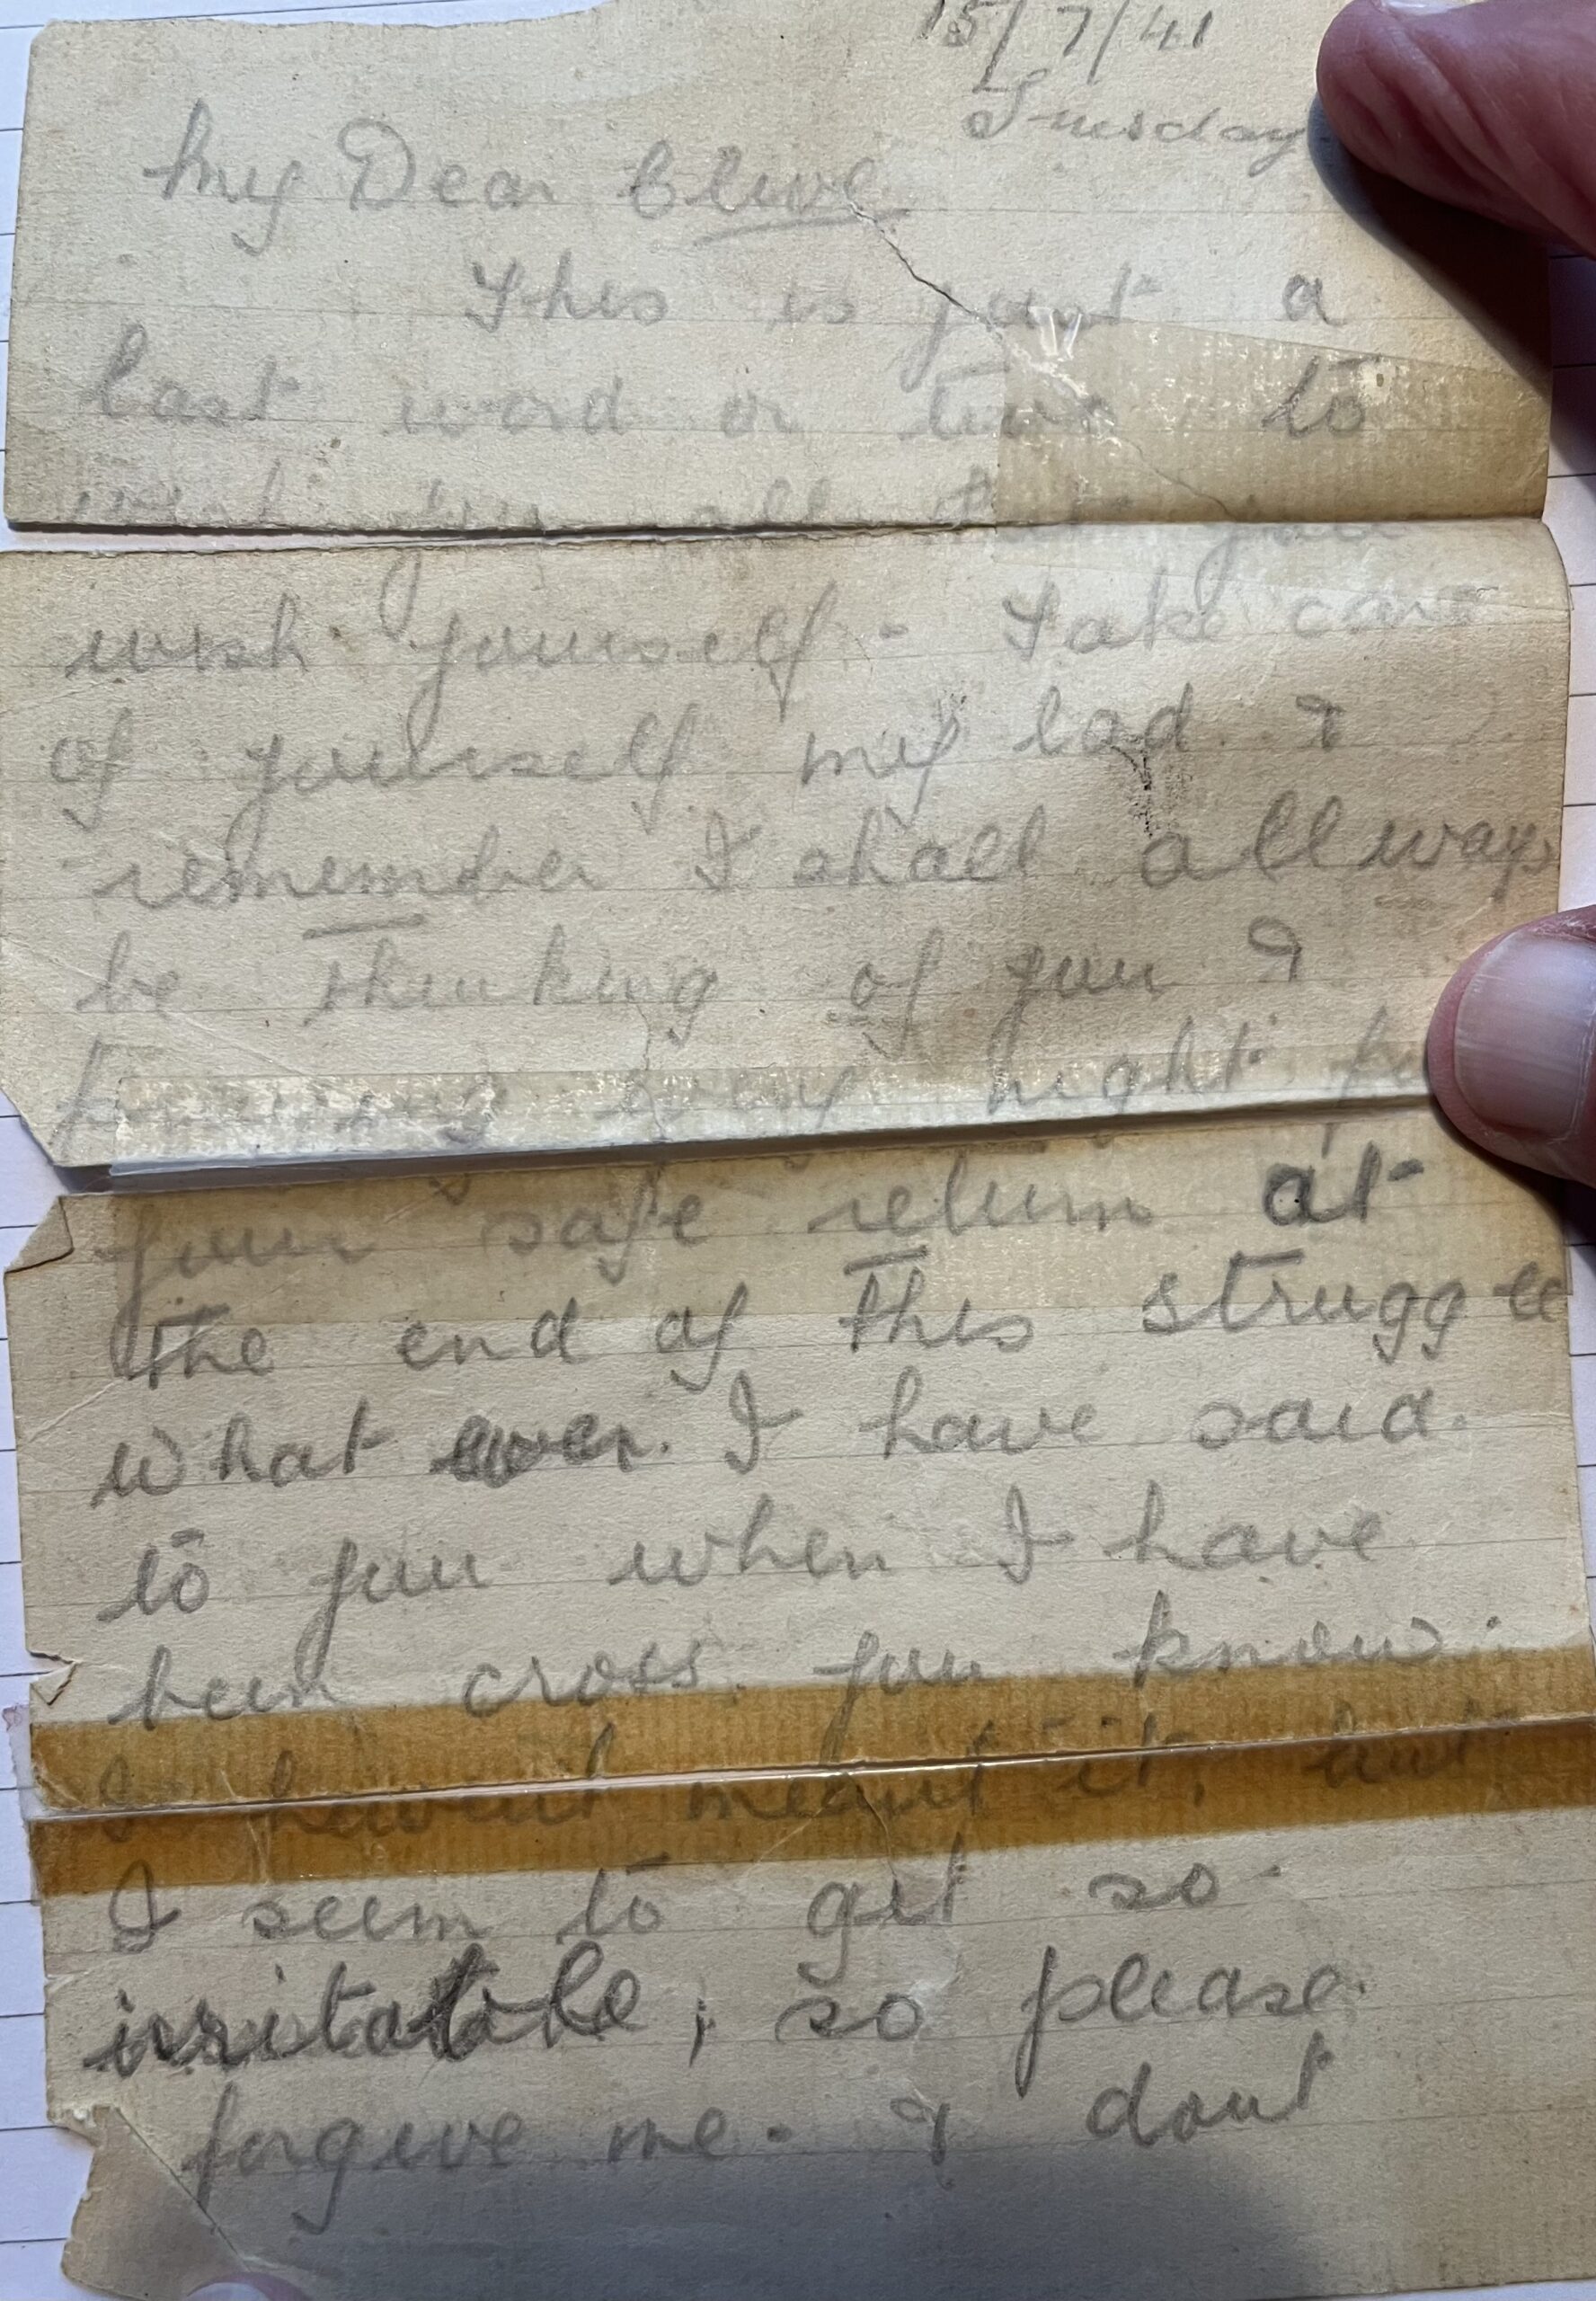 15/7/41
Tuesday
My Dear Clive
This is just a
last word or two to
wish you all that you
wish yourself - Take care
of yourself my lad &
remember I shall allways
be thinking of you &
praying every night for
your safe return at
the end of this struggle
what ever. I have said.
to you when I have
been cross. you know.
I havent meant it, but
I seem to get so.
irritatible, so please.
forgive me. & dont